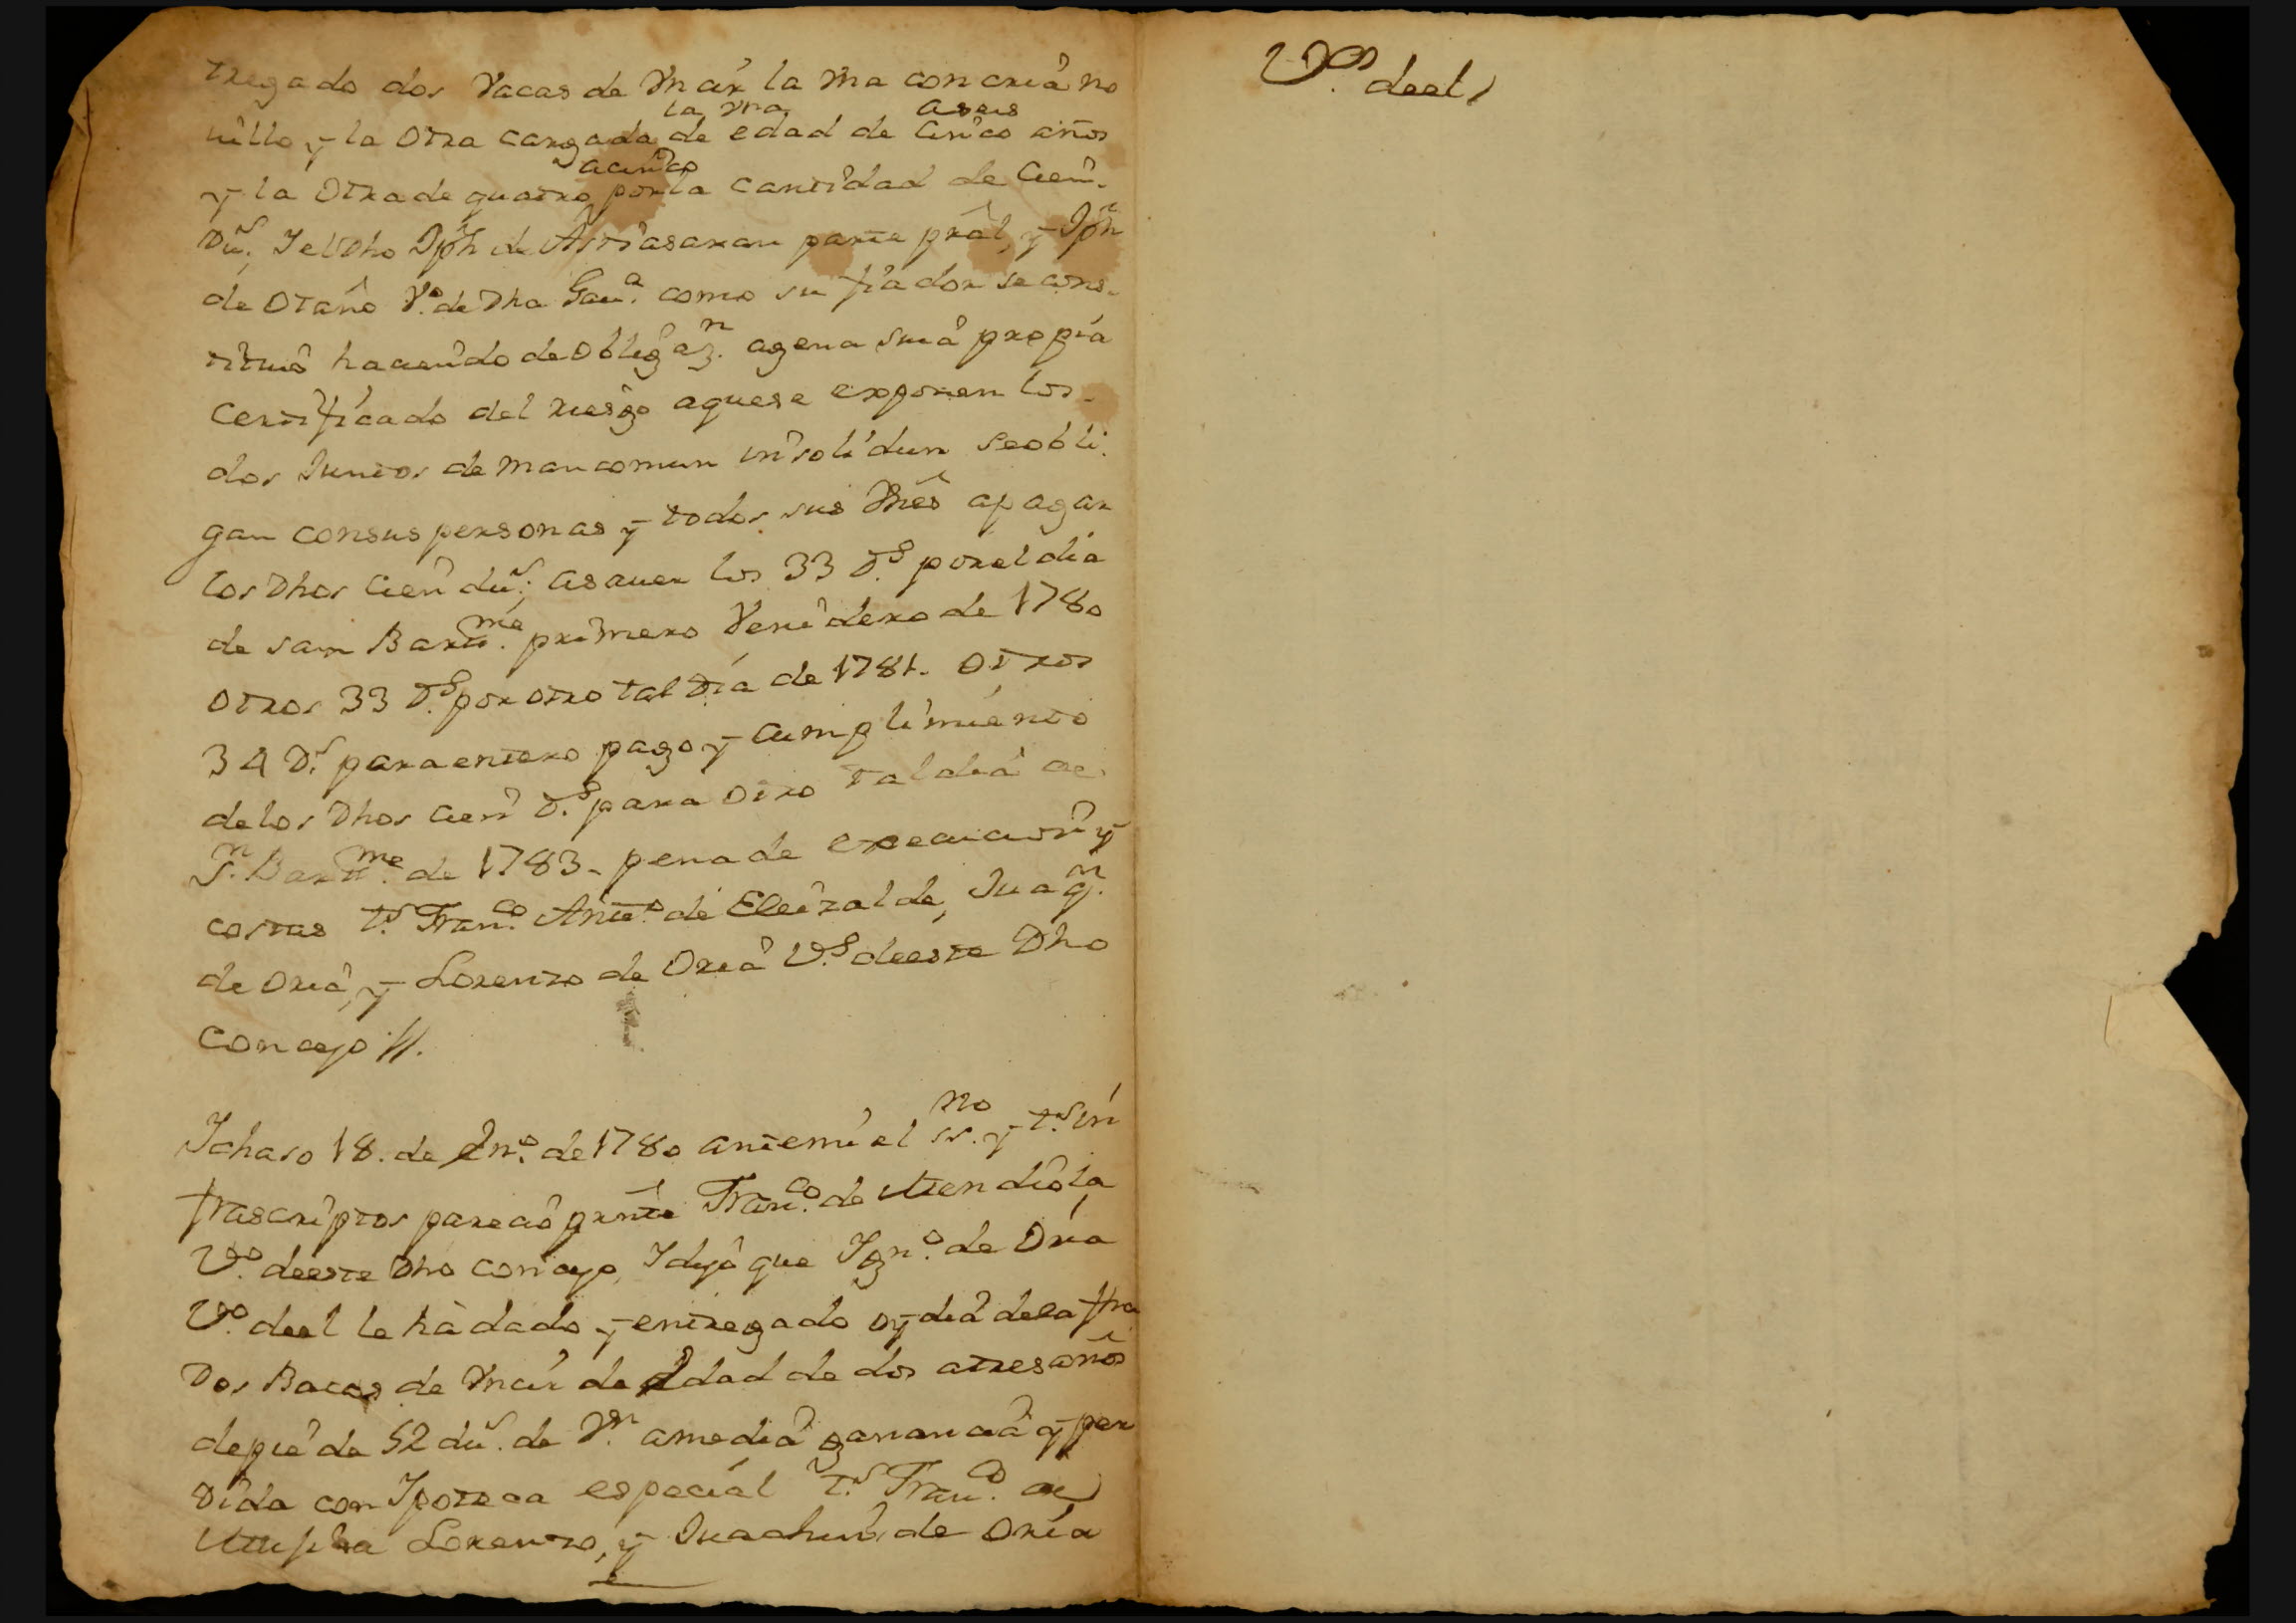 tregado dos Vacas de Maiz la Vna con criâ no
la vna aseis
villo y la otra cargada de edad de cinco años
acinco
y la otra de quatro por la cantidad de Cien.
Dus. Y el Dho Jph de Astiasaran parte prâl, y Jph
de otaño Vº. de Dha Gauª. como su fiador se cons-
tituio haciendo de obligazn. agena suiâ propia
Certificado del riesgo aquese exponen los-
dos Juntos de mancomun insolidun seobli.
gan consus personas y todos sus Vnês apagar
los Dhos Cien dus; asauer los 33 Ds. porel dia
de san Bartme. primero Venidero de 1780
otros 33 Ds. por otro tal Dia de 1781. otros
34 Ds. para entero pago y cumplimiento
delos Dhos cien Ds. para otro tal dia de
Sn. Bartme. de 1783- pena de execucion y
costas ts. Franco. Anto. de Eleizalde, Juaqn.
de oria, y Lorenzo de oria Vs. deeste Dho
Concejo //.
Ichaso 18. de Eno. de 1780 antemi el ssno. y ts. in
frascriptos pareciô prnte Franco. de Mendiola
Vº. deeste Dho concejo, Y dijo que Igno. de Oria
Vº. deel le hà dado y entregado oy dia dela fha
Dos Bacas de Maiz de Edad de dos atres años
depie de 52 dus. de Vn. amediâ ganancia y per
dida con Ypoteca especial ts. Franco. de
Lorenzo, y Juachin de Oria
Vos. deel